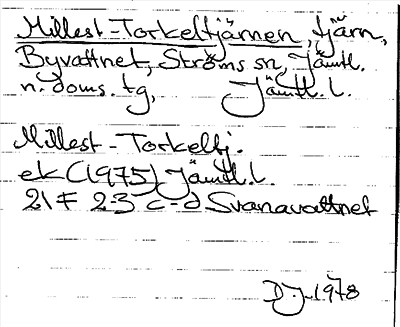 Millest-Torkeltjärnen, tjärn,
Byvattnet, Ströms sn, Jämtl.
n. doms. tg, Jämtl. l.
Millest-Torkeltj.
ek (1975) Jämtl. l.
21F 2-3 c-d Svanavattnet
DJ. 1978